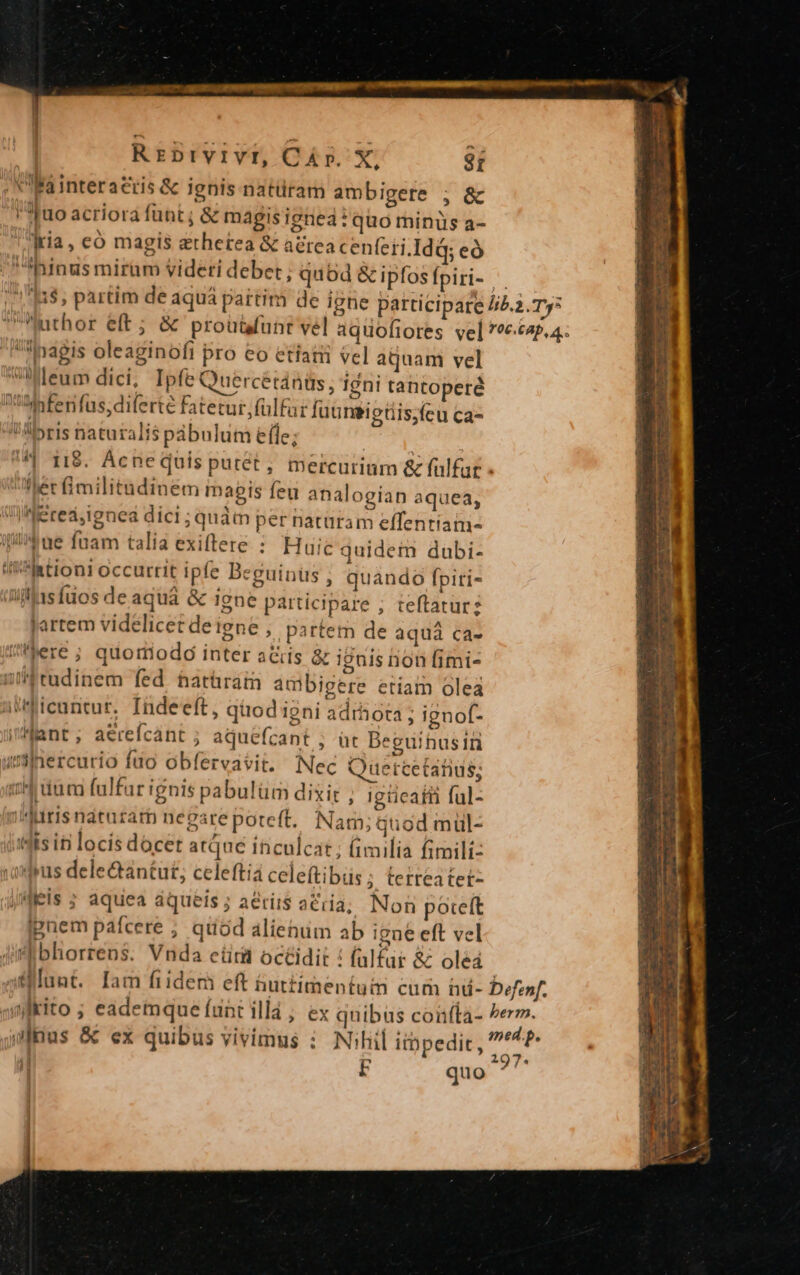 REDIVIVI, CAP. X. 81
inter aëris & ignis naturam ambigere ; &
quo acriora sunt ; & magis ignea : quo minùs a-
cria, eò magis ætherea & aërea censeri. Idq; eò
minus mirum videri debet, quòd & ipsos spiri-
partim de aquâ partim de igne participare lib. 2. Ty-
Author est ; & prout sunt vel aquosiores vel roc. cap. 4.
magis oleaginosi pro eo etiam vel aquam vel
oleum dici. Ipse Quercetanus, igni tantoperè
infensus, disertè fatetur, sulfur suum ignis, seu ca-
loris naturalis pabulum esse.
118. Ac ne quis putet, mercurium & sulfur
per similitudinem magis seu analogian aquea,
aërea, ignea dici ; quàm per naturam essentiam-
que suam talia existere : Huic quidem dubi-
tationi occurrit ipse Beguinus, quando spiri-
tus suos de aquâ & igne participare, testatur :
partem videlicet de igne, partem de aquâ ca-
pere ; quomodo inter aëris & ignis non simi-
litudinem sed naturam ambigere etiam olea
dicuntur. Inde est, quod igni admota, ignes-
cant, aërescant ; aquescant, ut Beguinus in
mercurio suo observavit. Nec Quercetanus,
dum sulfur ignis pabulum dixit, igneam sul-
furis naturam negare potest. Nam, quod mul-
tis in locis docet atque inculcat, similia simili-
bus delectantur, celestia celestibus, terrea ter-
reis ; aquea aqueis ; aëriis aëria. Non potest
ignem pascere, quod alienum ab igne est vel
abhorrens. Unda cum occidit : sulfur & olea
alunt. Iam si idem est nutrimentum cum nu- Defens.
trito ; eademque sunt illa, ex quibus consta- herm.
mus & ex quibus vivimus : Nihil impedit, med. p.
F quo 197.